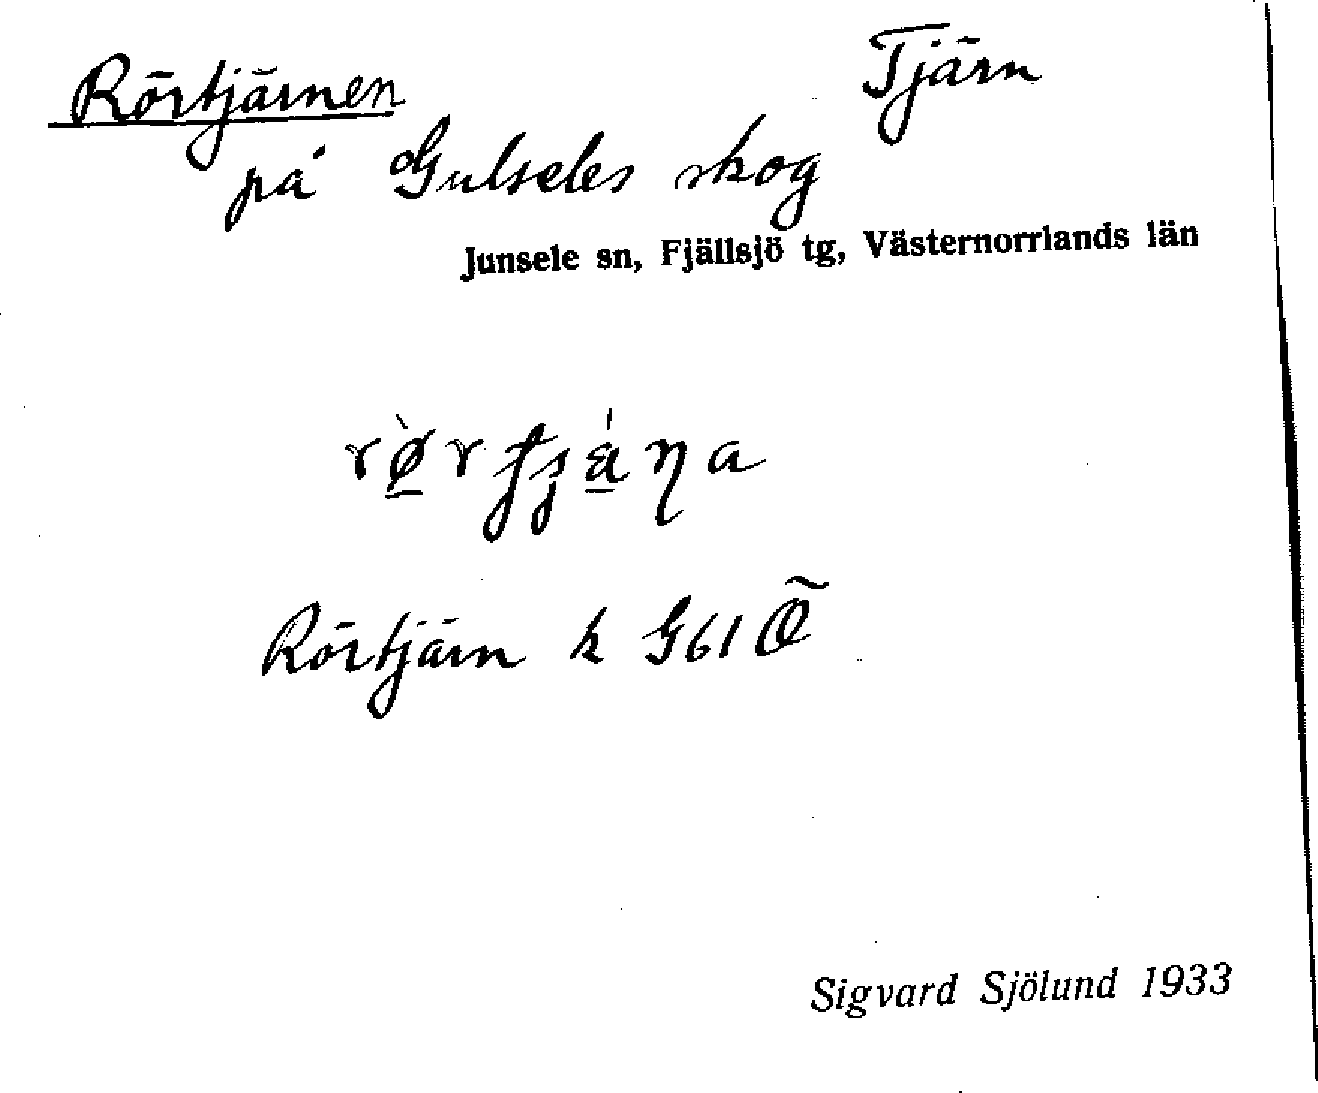 Rörtjärnen
Tjärn
på Gulseles skog
Junsele sn, Fjällsjö tg, Västernorrlands län
Rörtjärn k G61 Ö
Sigvard Sjölund 1933